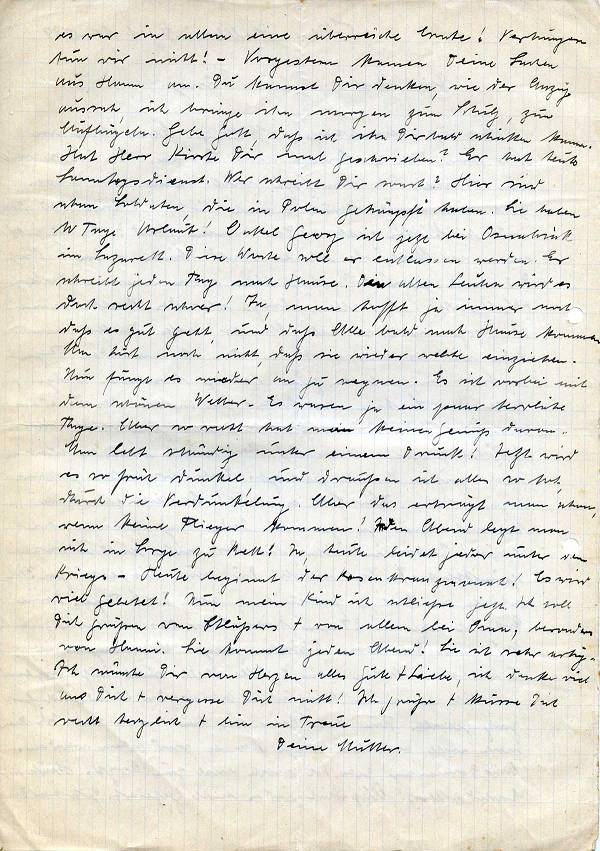 es war in allem eine überreiche Ernte! Verhungern
tun wir nicht! – Vorgestern kamen Deine Sachen
aus Hamm an. Du kannst Dir denken, wie der Anzug
aussah, ich bringe ihn morgen zum Stütz, zum
Aufbügeln. Gebe Gott, daß ich ihn Dir bald schicken kann.
Hat Herr Kirste Dir mal geschrieben? Er hat heute
Sonntagsdienst. Wer schreibt Dir sonst? Hier sind
schon Soldaten, die in Polen gekämpft haben. Sie haben
10 Tage Urlaub! Onkel Georg ist jetzt bei Osnabrück
im Lazarett. Diese Woche soll er entlassen werden. Er
schreibt jeden Tag nach Hause. Den alten Leuten wird es
doch recht schwer! Ja, man hofft ja immer noch
daß es gut geht, und daß Alle bald nach Hause kommen
Man hört noch nicht, daß sie wieder welche einziehen.
Nun fängt es wieder an zu regnen. Es ist vorbei mit
dem schönen Wetter. Es waren ja ein paar herrliche
Tage. Aber so recht hat man keinen Genuß davon.
Man lebt ständig unter einem Druck! Jetzt wird
es so früh dunkel, und draußen ist alles so tot,
durch die Verdunkelung. Aber das erträgt man schon,
wenn keine Flieger kommen! Jeden Abend legt man
sich in Sorge zu Bett! Ja, heute leidet jeder unter dem
Kriege – Heute beginnt der Rosenkranzmonat! Es wird
viel gebetet! Nun mein Kind ich schließe jetzt. Ich soll
Dich grüßen von + von allen bei Onna, besonders
von Hanni. Sie kommt jeden Abend! Sie ist sehr
Ich wünsche Dir von Herzen alles Gute + Liebe, ich denke viel
an Dich + vergesse Dich nicht! Ich grüße + küsse Dich
recht herzlich + bin in Treue
Deine Mutter.